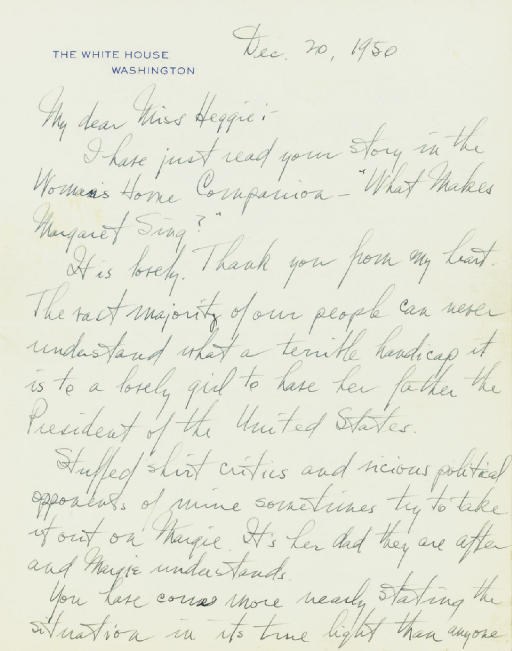 Dec. 20, 1950
THE WHITE HOUSE
WASHINGTON
My dear Miss Heggie:-
I have just read your story in the
Woman's Home Companion - "What Makes
Margaret Sing?"
It is lovely. Thank you from my heart.
The vast majority of our people can never
understand what a terrible handicap it
is to a lovely girl to have her father the
President of the United States.
Stuffed shirt critics and vicious political
opponents of mine sometimes try to take
it out on Margie. It's her dad they are after
and Margie understands.
You have come more nearly stating the
situation in its true light than anyone